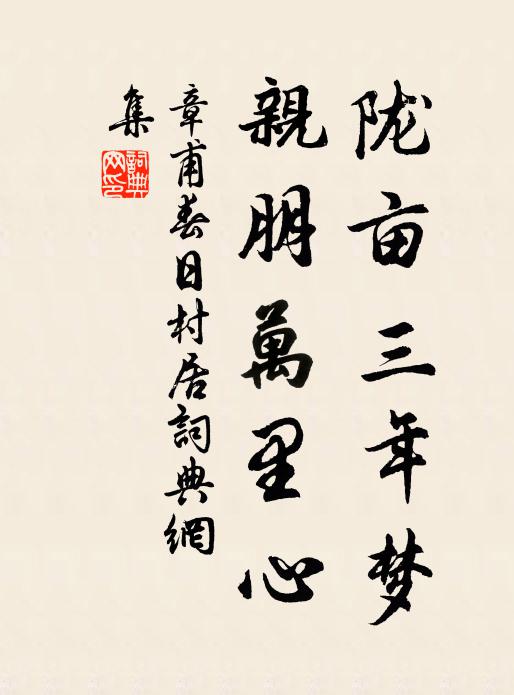 陇亩三年梦
親朋萬里心
章甫春日村居詞典網
集
詞典
网印